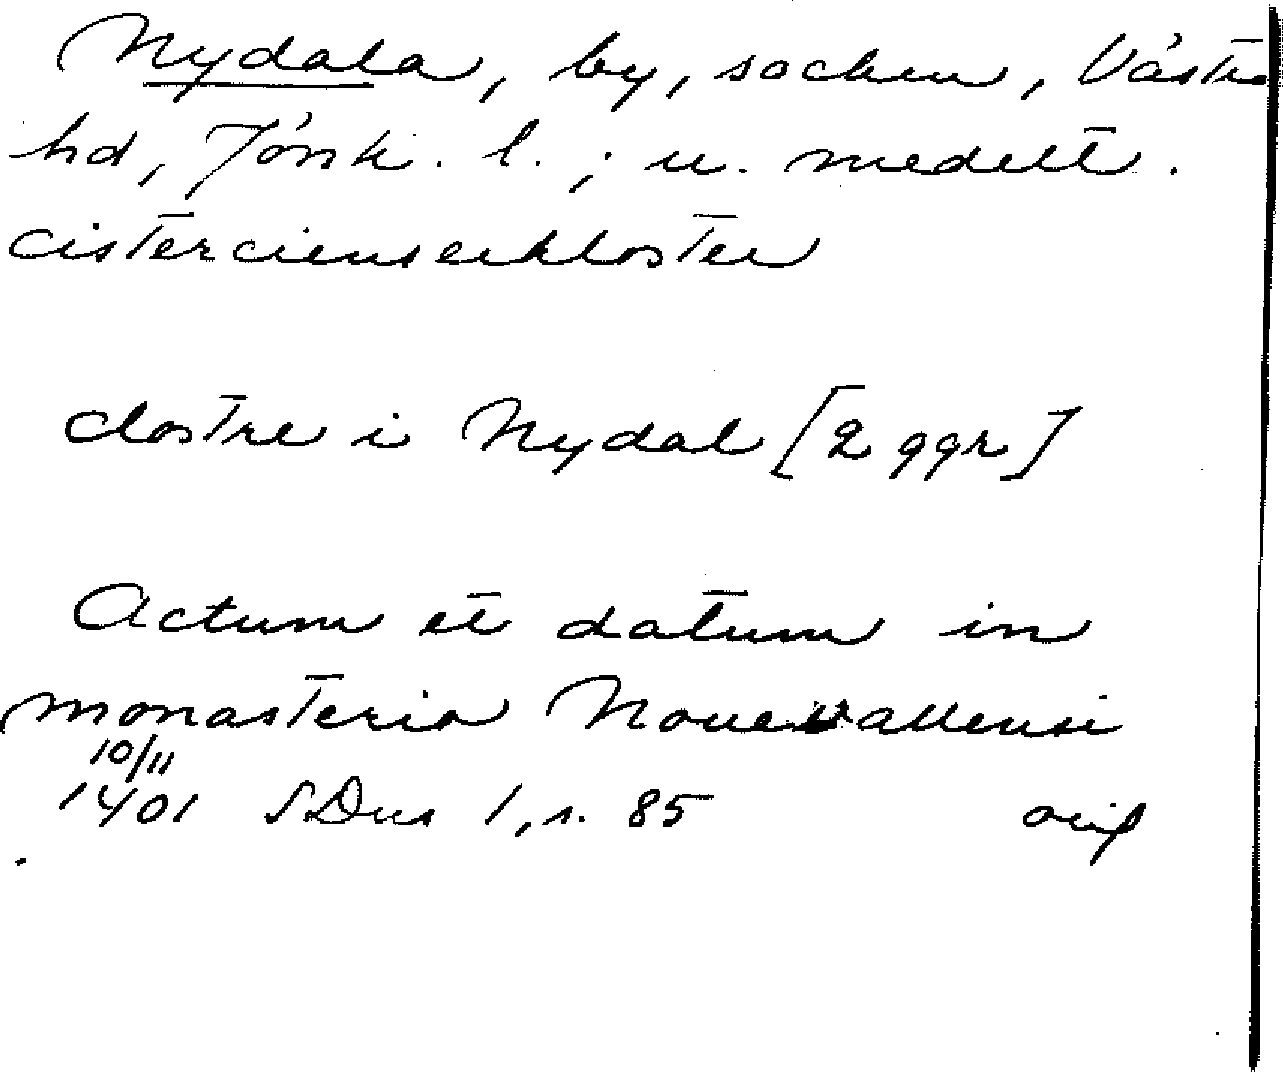 Nydala, by, socken, Västra
hd, Jönk. l.; u. medelt.
cistercienserkloster
clostre i Nydal [2 ggr]
Actum et datum in
monasterio Nouevallensi
10/11
1401 SDns 1, s. 85 orig